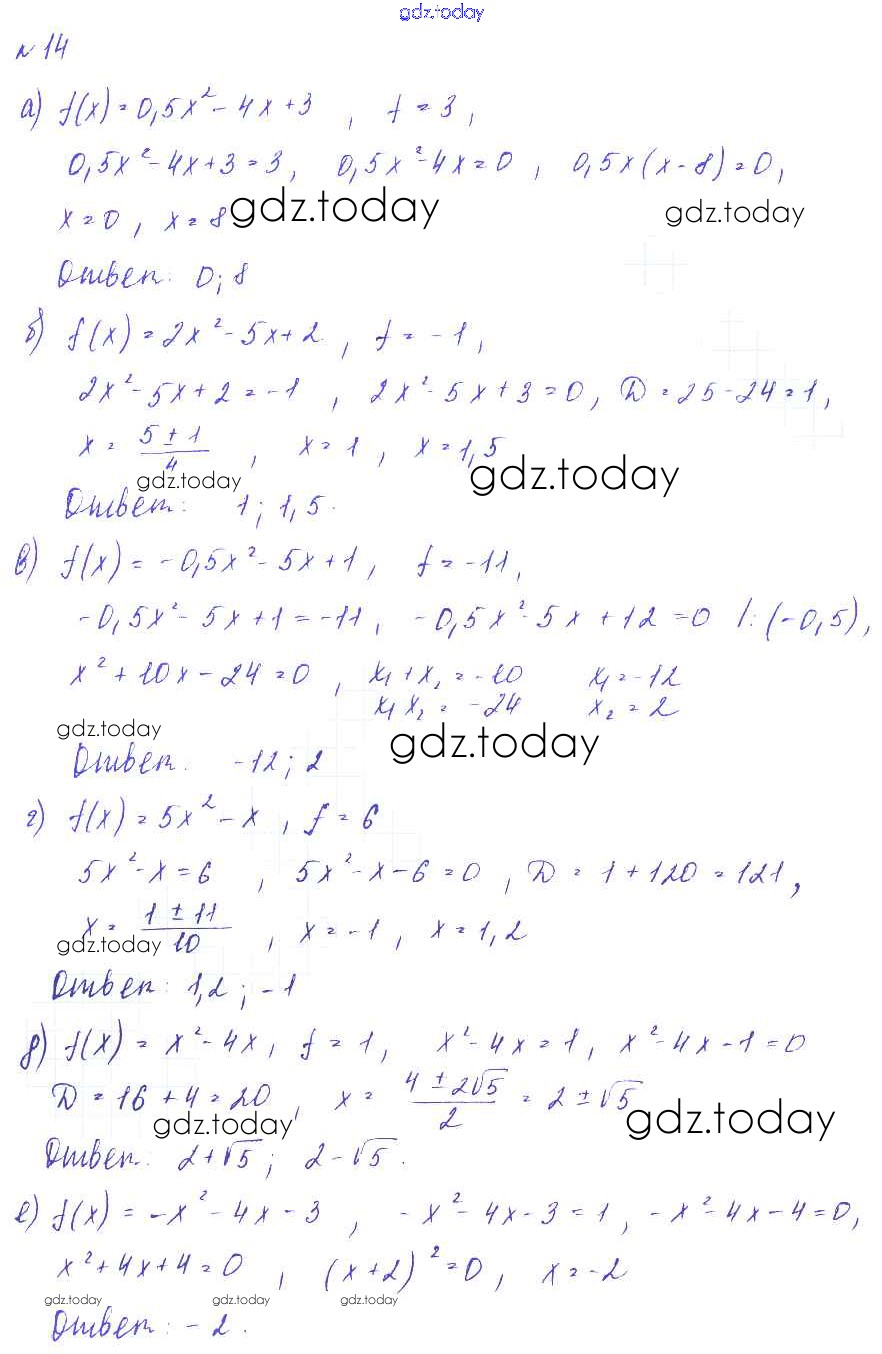 gdz.today
№ 14
а) f(x) = 0,5x² - 4x + 3 , f = 3 ,
0,5x² - 4x + 3 = 3 , 0,5x² - 4x = 0 , 0,5x(x - 8) = 0 ,
x = 0 , x = 8 gdz.today gdz.today
Ответ: 0; 8
б) f(x) = 2x² - 5x + 2 , f = -1 ,
2x² - 5x + 2 = -1 , 2x² - 5x + 3 = 0 , D = 25 - 24 = 1 ,
x = (5 ± 1)/4 , x = 1 , x = 1,5
gdz.today gdz.today
Ответ: 1; 1,5.
в) f(x) = -0,5x² - 5x + 1 , f = -11 ,
-0,5x² - 5x + 1 = -11 , -0,5x² - 5x + 12 = 0 /:(-0,5) ,
x² + 10x - 24 = 0 , x₁ + x₂ = -10 x₁ = -12
x₁ x₂ = -24 x₂ = 2
gdz.today gdz.today
Ответ: -12; 2
г) f(x) = 5x² - x , f = 6
5x² - x = 6 , 5x² - x - 6 = 0 , D = 1 + 120 = 121 ,
x = (1 ± 11)/10 , x = -1 , x = 1,2
gdz.today
Ответ: 1,2; -1
д) f(x) = x² - 4x , f = 1 , x² - 4x = 1 , x² - 4x - 1 = 0
D = 16 + 4 = 20 , x = (4 ± 2√5)/2 = 2 ± √5
gdz.today gdz.today
Ответ: 2+√5; 2-√5.
е) f(x) = -x² - 4x - 3 , -x² - 4x - 3 = 1 , -x² - 4x - 4 = 0 ,
x² + 4x + 4 = 0 , (x + 2)² = 0 , x = -2
gdz.today gdz.today gdz.today
Ответ: -2.